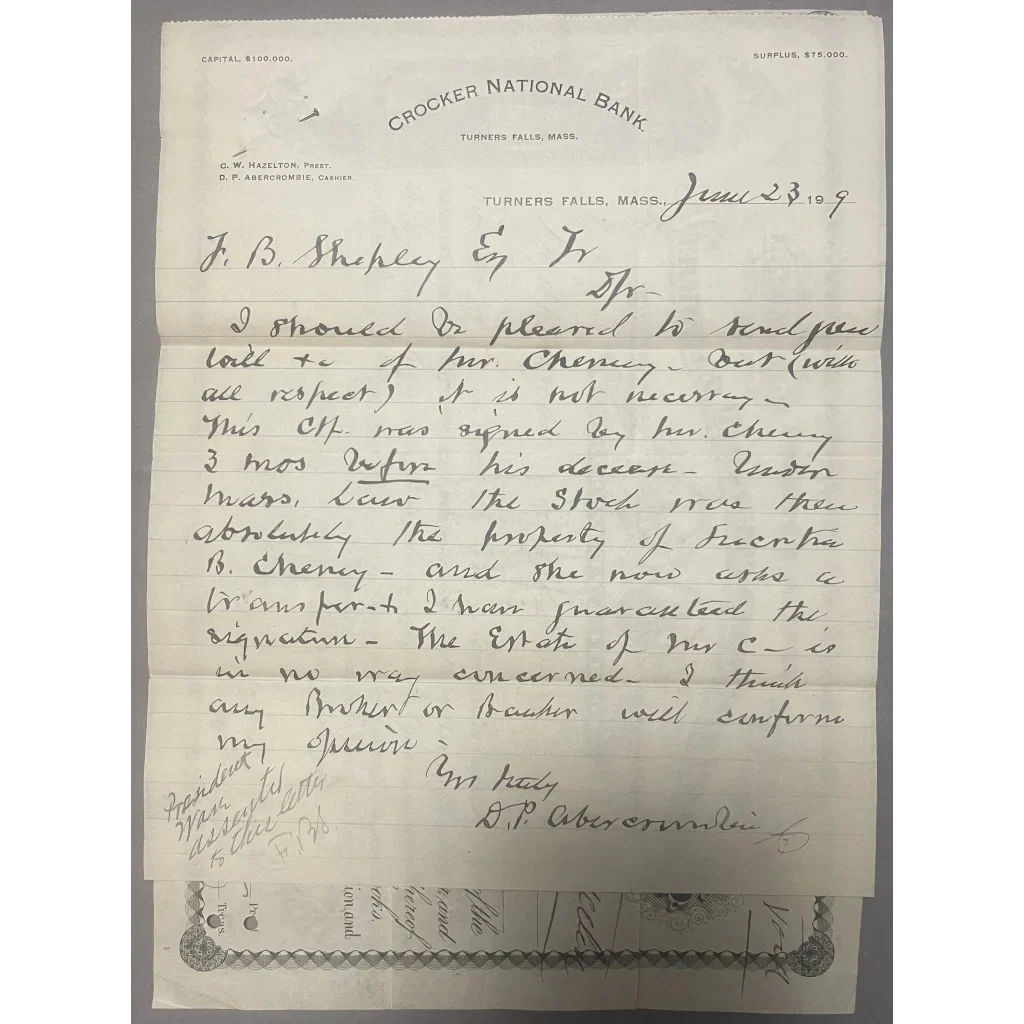 CAPITAL, $100,000.
SURPLUS, $75,000.
CROCKER NATIONAL BANK.
TURNERS FALLS, MASS.
C. W. HAZELTON, PREST.
D. P. ABERCROMBIE, CASHIER.
TURNERS FALLS, MASS., June 23 19 9
F. B. Shepley Esq Tr
I should be pleased to send you
will &c of Mr. Cheney - but (with
all respect) it is not necessary -
This Ctf. was signed by Mr. Cheney
3 mos before his decease - Under
Mass. Law the Stock was then
absolutely the property of
B. Cheney - and she now asks a
transfer & I have guaranteed the
signature - The Estate of Mr C - is
in no way concerned - I think
any Broker or Banker will confirm
my opinion -
Yrs truly
D. P. Abercrombie
President
Wason
assented
to this letter
F.B.S.
of the
and
hereof
oks.
ion, and
Treas